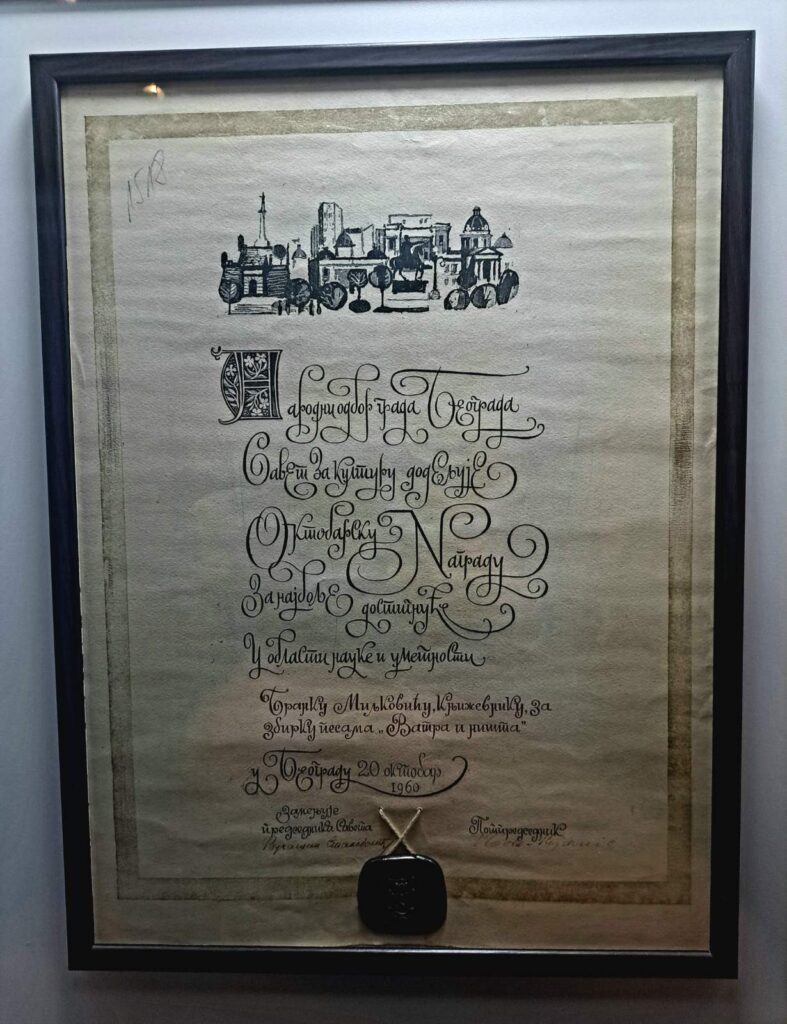 1518
Народни одбор града Београда
Савет за културу додељује
Октобарску Nаграду
За најбоље достигнуће
У области науке и уметности
Бранку Миљковићу, књижевнику, за
збирку песама „Ватра и ништа“
у Београду 20 октобар
1960
Замењује
председника Савета
Потпредседник